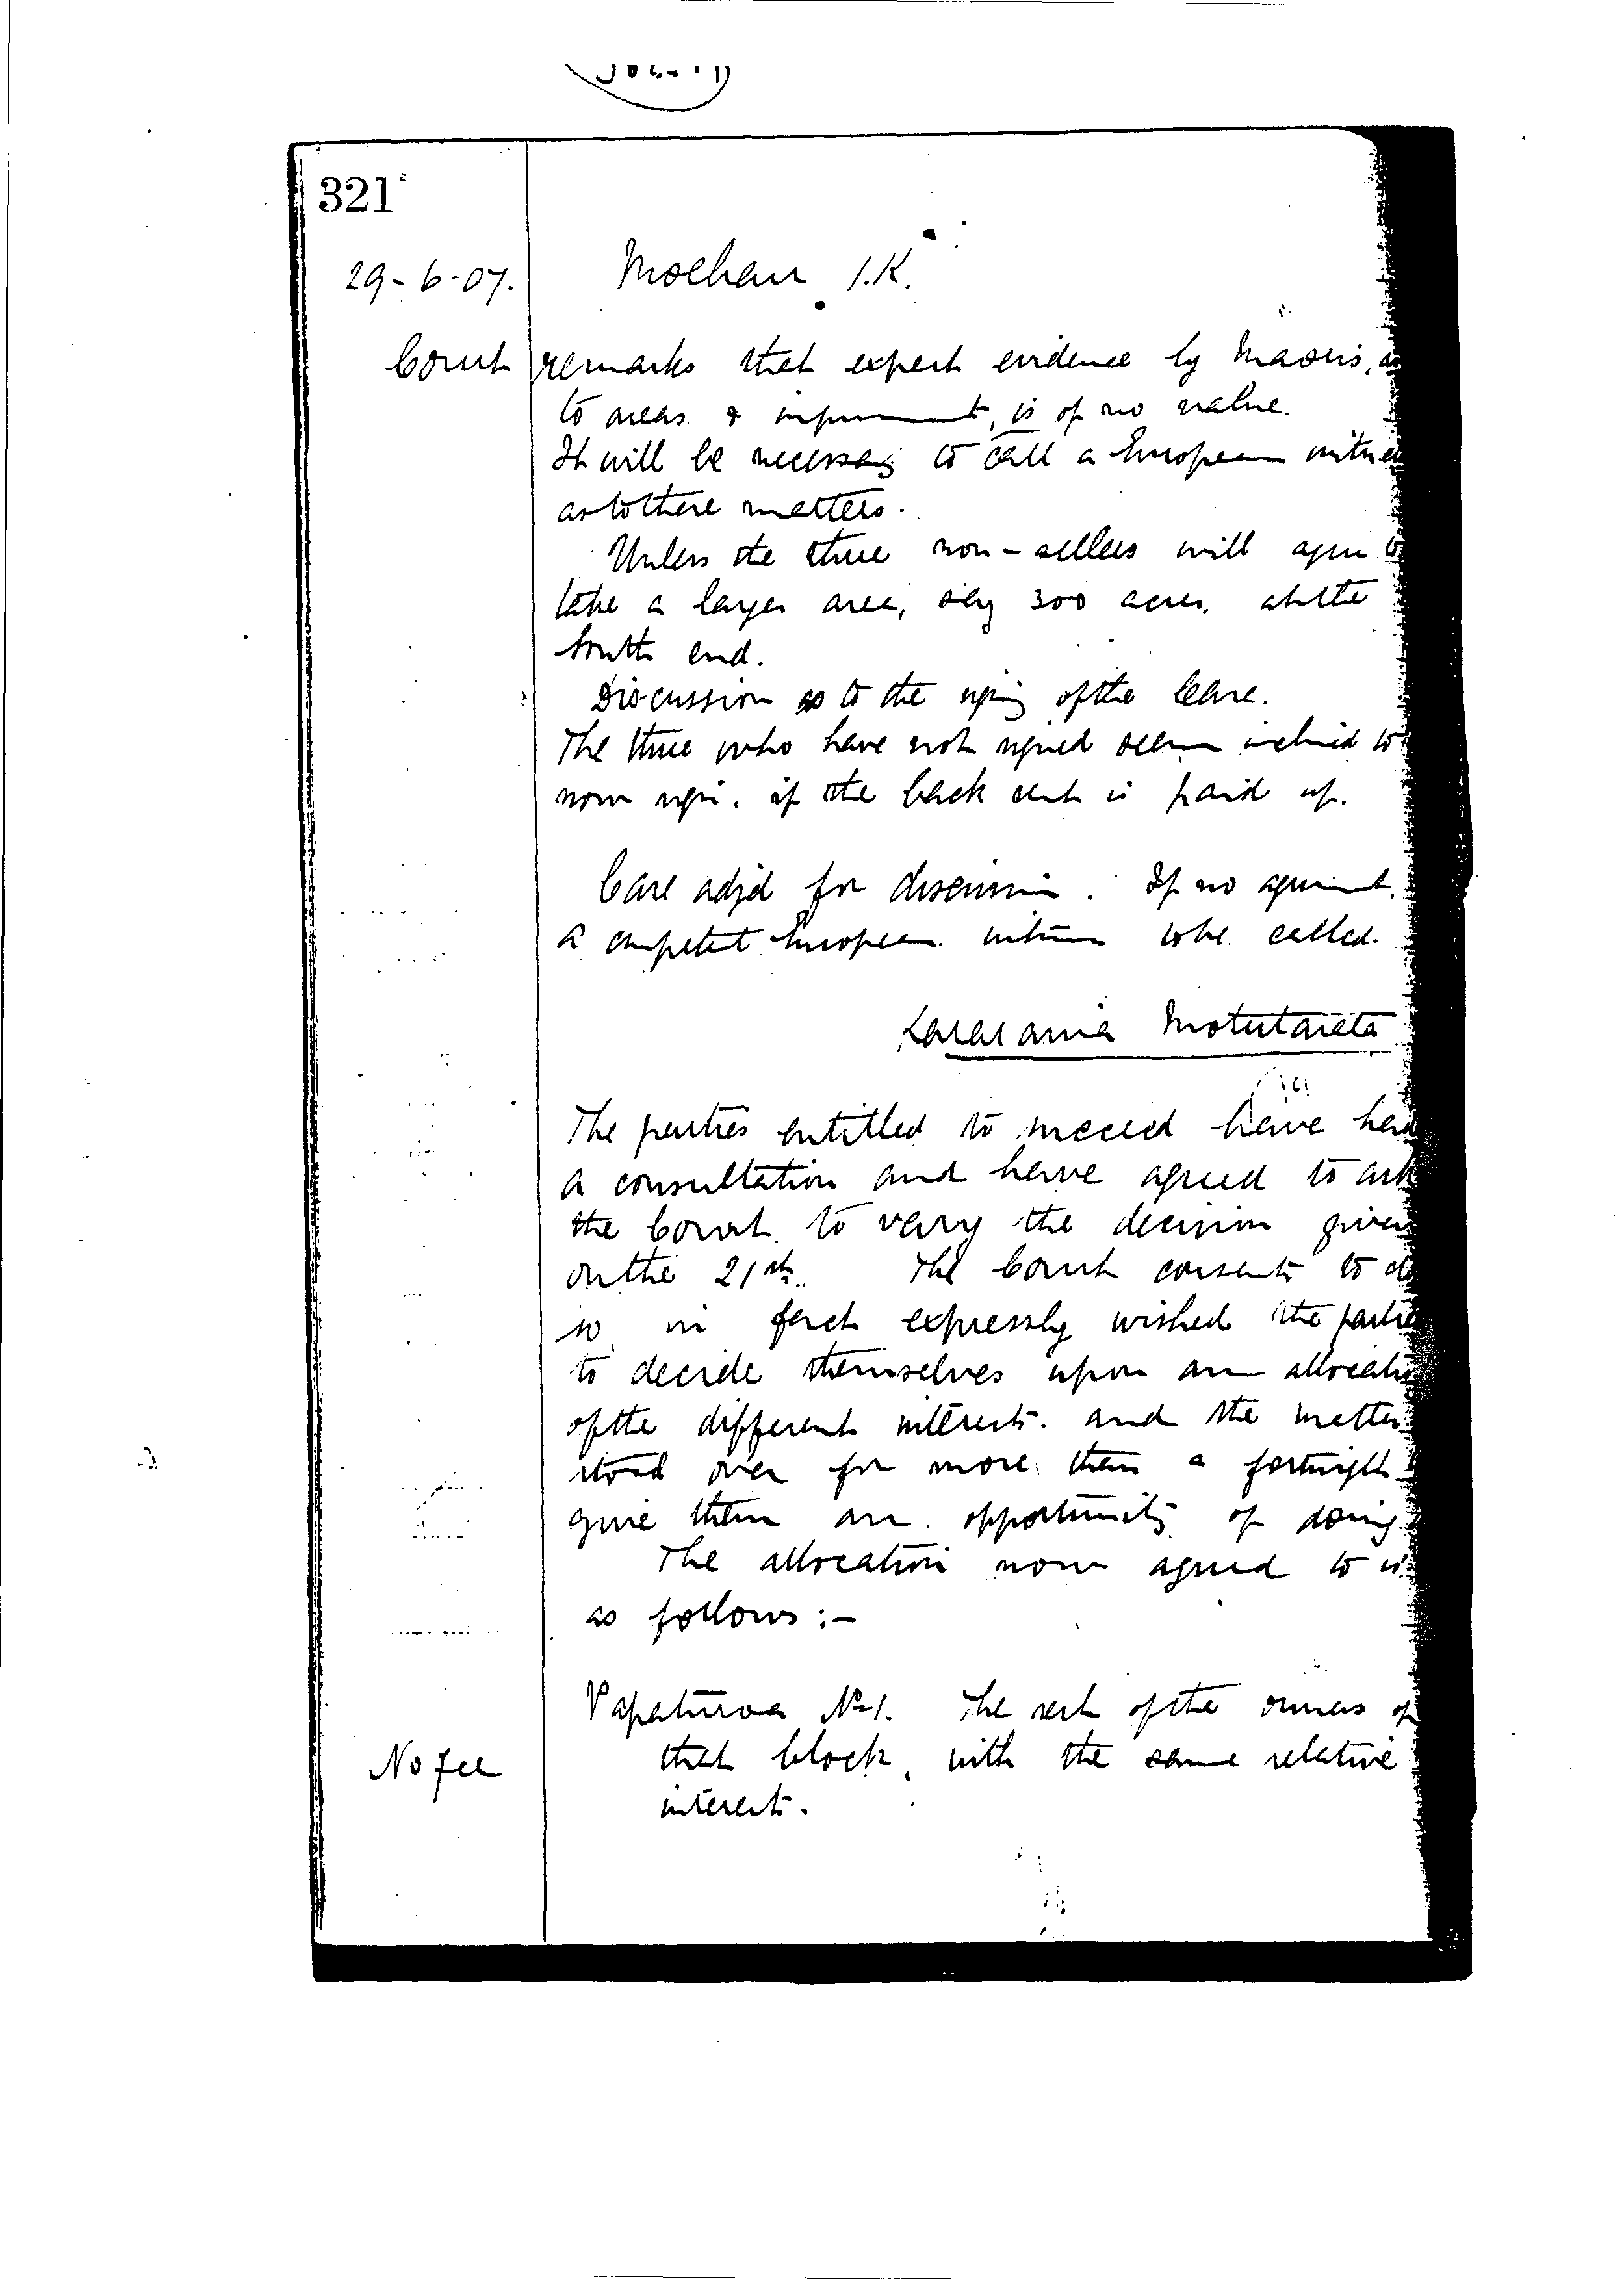 321
29-6-07.
Moehau 1.K.
Court remarks that expert evidence by Maoris, as
to areas & improvement, is of no value.
It will be necessary to call a European witness
as to these matters.
Unless the three non-sellers will agree to
take a larger area, say 300 acres, at the
South end.
Discussion as to the signing of the lease.
The three who have not signed seem inclined to
now sign, if the back rent is paid up.
Case adjd for discussion. If no agreement,
a competent European witness to be called.
Motutaieta
The parties entitled to succeed have had
a consultation and have agreed to ask
the Court to vary the decision given
on the 21st. The Court consents to do
so in fact expressly wished the parties
to decide themselves upon an allocation
of the different interests and the matter
stood over for more than a fortnight
give them an opportunity of doing
The allocation now agreed to is
as follows:-
Papaturoa No 1. The rest of the owners of
No fee
that block, with the same relative
interests.